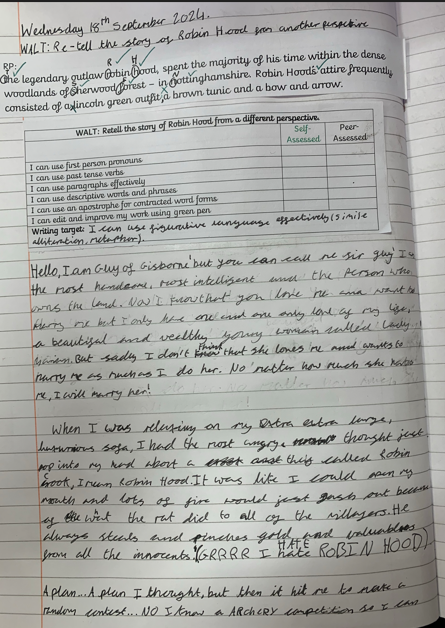 Wednesday 18th September 2024.
WALT: Re-tell the story of Robin Hood from another perspective
RP:
The legendary outlaw Robin Hood, spent the majority of his time within the dense
woodlands of Sherwood Forest – in Nottinghamshire. Robin Hood's attire frequently
consisted of a lincoln green outfit, a brown tunic and a bow and arrow.
WALT: Retell the story of Robin Hood from a different perspective.
Self-Assessed
Peer-Assessed
I can use first person pronouns
I can use past tense verbs
I can use paragraphs effectively
I can use descriptive words and phrases
I can use an apostrophe for contracted word forms
I can edit and improve my work using green pen
Writing target: I can use figurative language effectively (simile
alliteration, metaphor).
Hello, I am Guy of Gisborne but you can call me sir guy I'm
the most handsome, most intelligent and the Person who
owns the land. Now I know that you love me and want to
Marry me but I only have one and one only love of my life,
a beautiful and wealthy young woman called Lady
Marian. But sadly I don't think that she loves me and wants to
marry me as much as I do her. No matter how much she hates
me, I will marry her!
When I was relaxing on my Extra extra large,
luxurious sofa, I had the most angry thought just
pop into my head about a thing called Robin
Crook, I mean Robin Hood. It was like I could open my
mouth and lots of fire would just gush out because
of what the rat did to all of the villagers. He
always steals and pinches gold and valuables
from all the innocents! (GRRRR I HATE ROBIN HOOD)
A plan... A plan I thought, but then it hit me to make a
random contest... NO I know a ARCHERY competition so I can